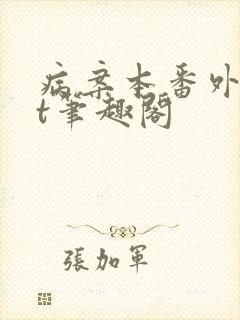 病案本番外
t笔趣阁
張加軍